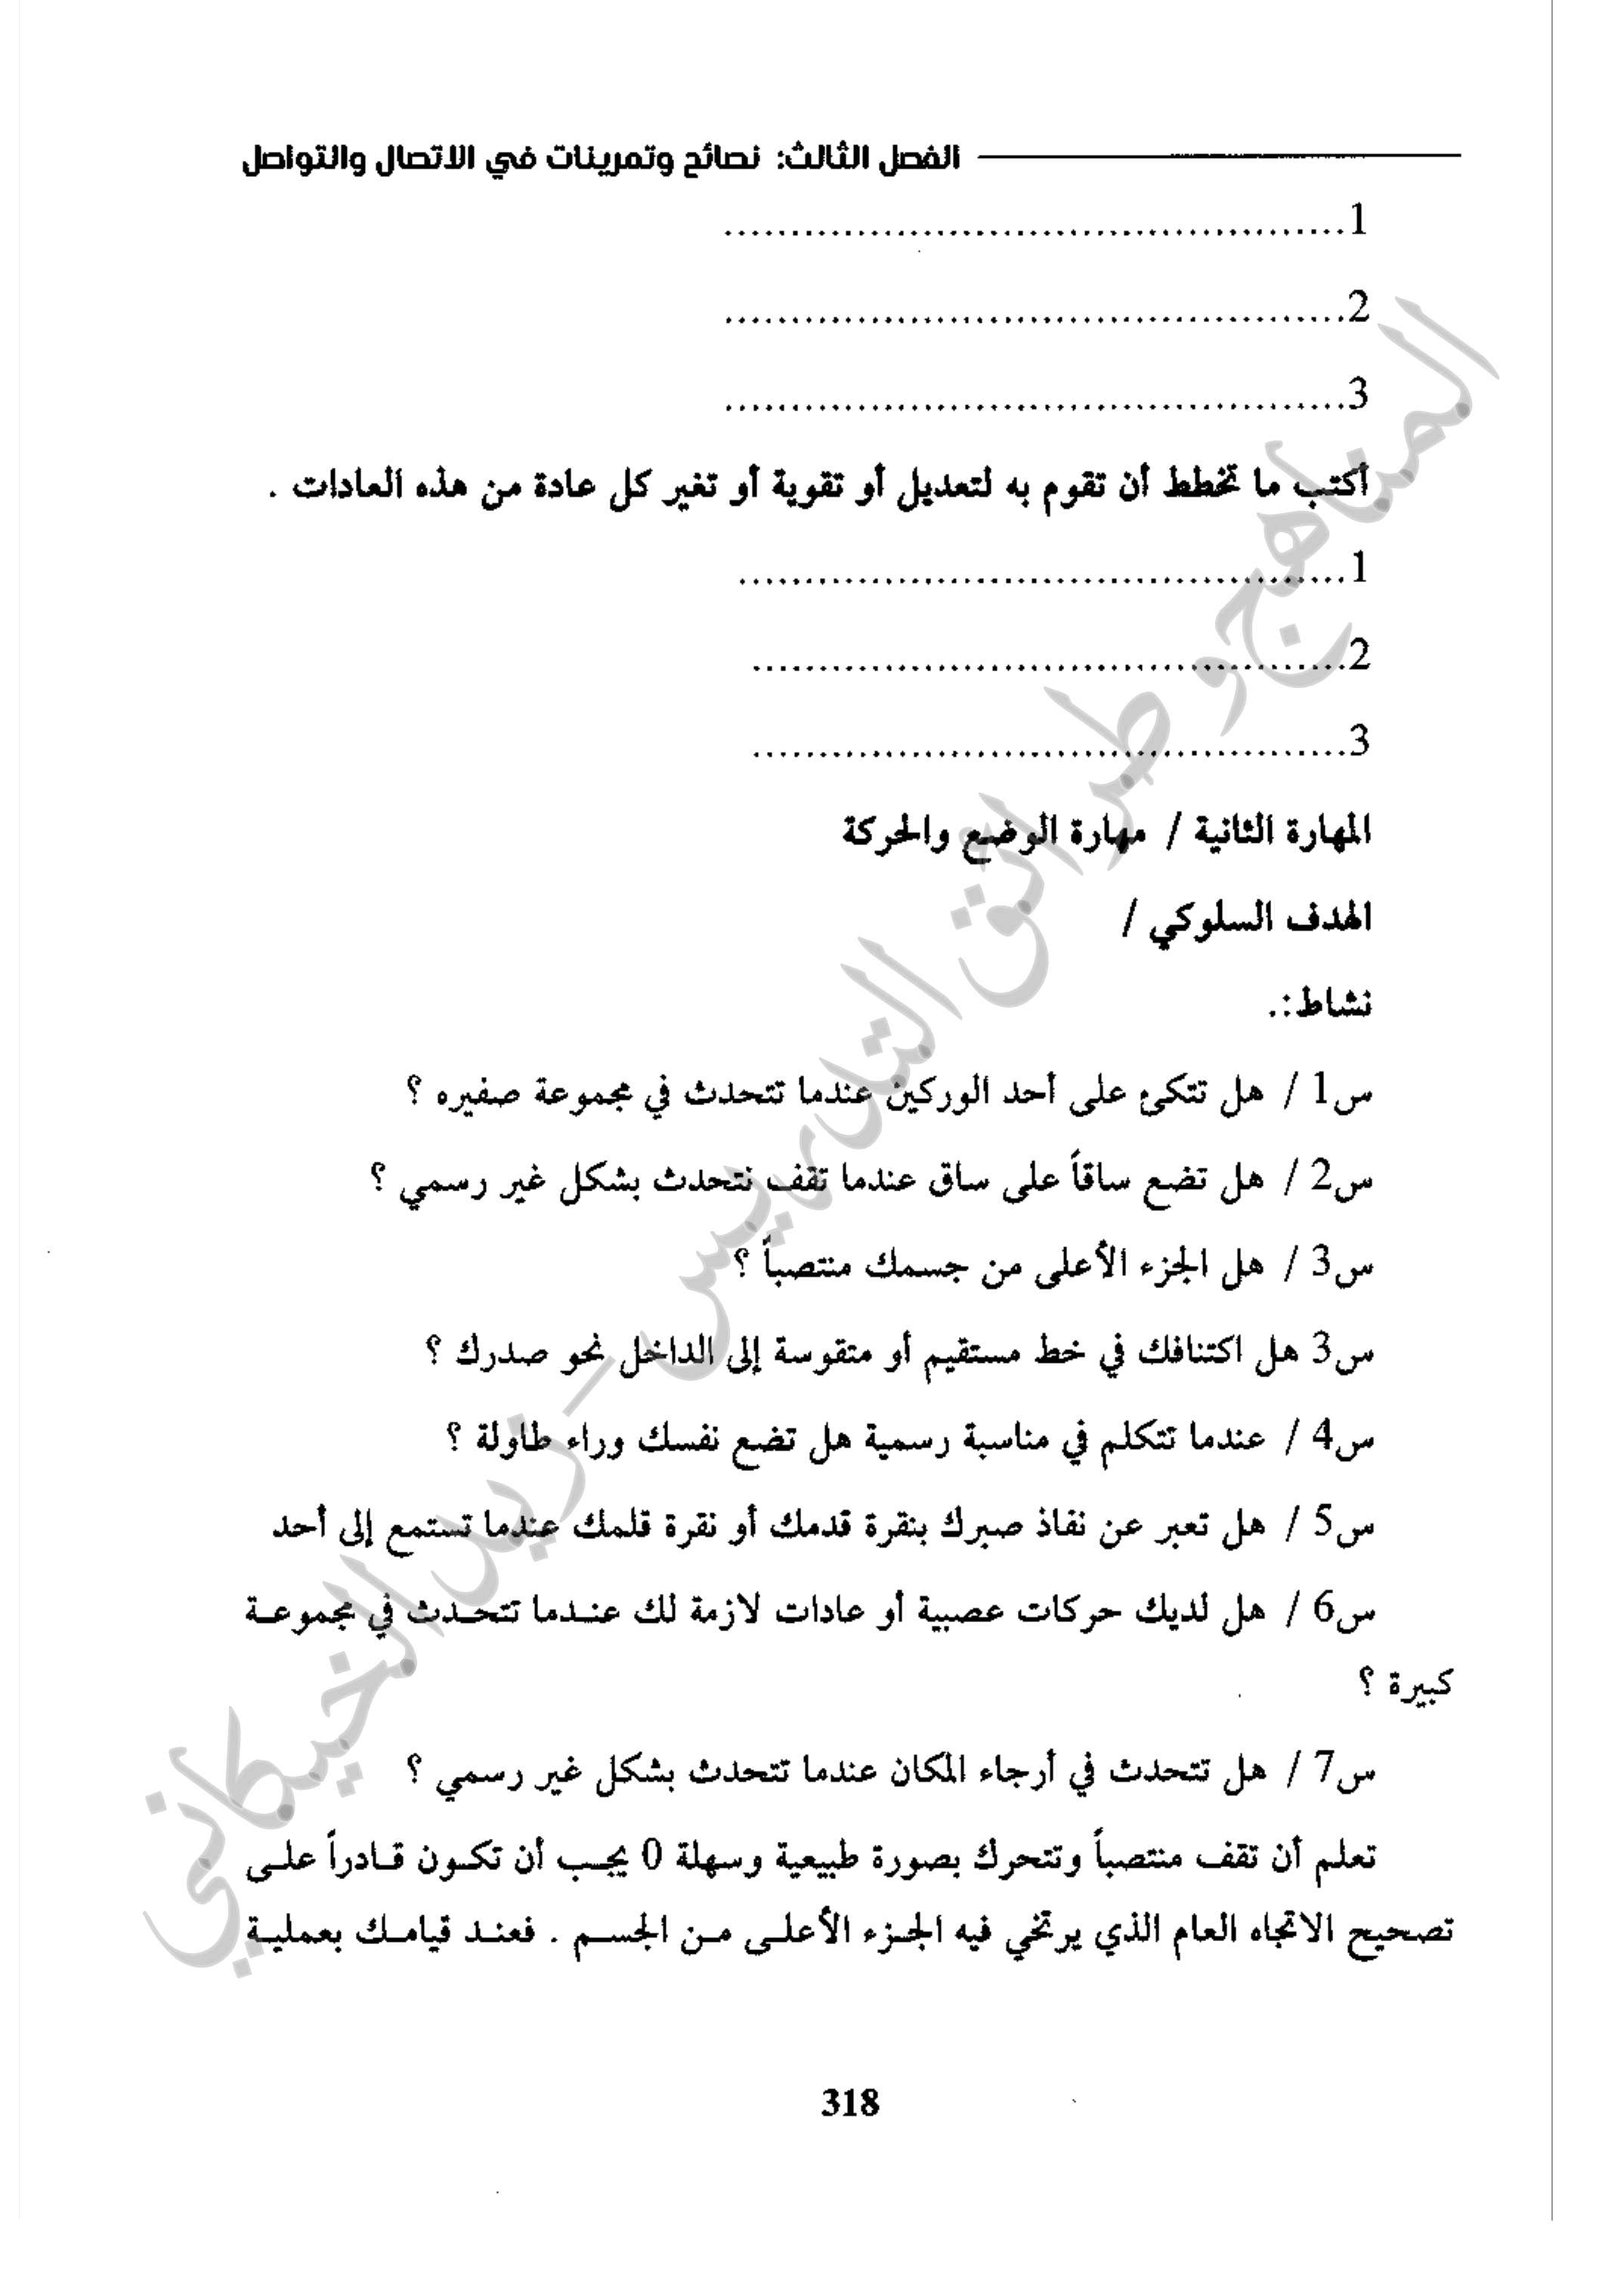 الفصل الثالث: نصائح وتمرينات في الاتصال والتواصل
1...............................................
2...............................................
3...............................................
أكتب ما تخطط أن تقوم به لتعديل أو تقوية أو تغير كل عادة من هذه العادات .
1..............................................
2.............................................
3.............................................
المهارة الثانية / مهارة الوضع والحركة
الهدف السلوكي /
نشاط:.
س1 / هل تتكئ على أحد الوركين عندما تتحدث في مجموعة صفيره ؟
س2 / هل تضع ساقاً على ساق عندما تقف نتحدث بشكل غير رسمي ؟
س3 / هل الجزء الأعلى من جسمك منتصباً ؟
س3 هل اكتنافك في خط مستقيم أو متقوسة إلى الداخل نحو صدرك ؟
س4 / عندما تتكلم في مناسبة رسمية هل تضع نفسك وراء طاولة ؟
س5 / هل تعبر عن نفاذ صبرك بنقرة قدمك أو نقرة قلمك عندما تستمع إلى أحد
س6 / هل لديك حركات عصبية أو عادات لازمة لك عندما تتحدث في مجموعة
كبيرة ؟
س7 / هل تتحدث في أرجاء المكان عندما تتحدث بشكل غير رسمي ؟
تعلم أن تقف منتصباً وتتحرك بصورة طبيعية وسهلة 0 يجب أن تكون قادراً على
تصحيح الاتجاه العام الذي يرتخي فيه الجزء الأعلى من الجسم . فعند قيامك بعملية
318
المناهج وطرائق التدريس - زيد الخيكاني